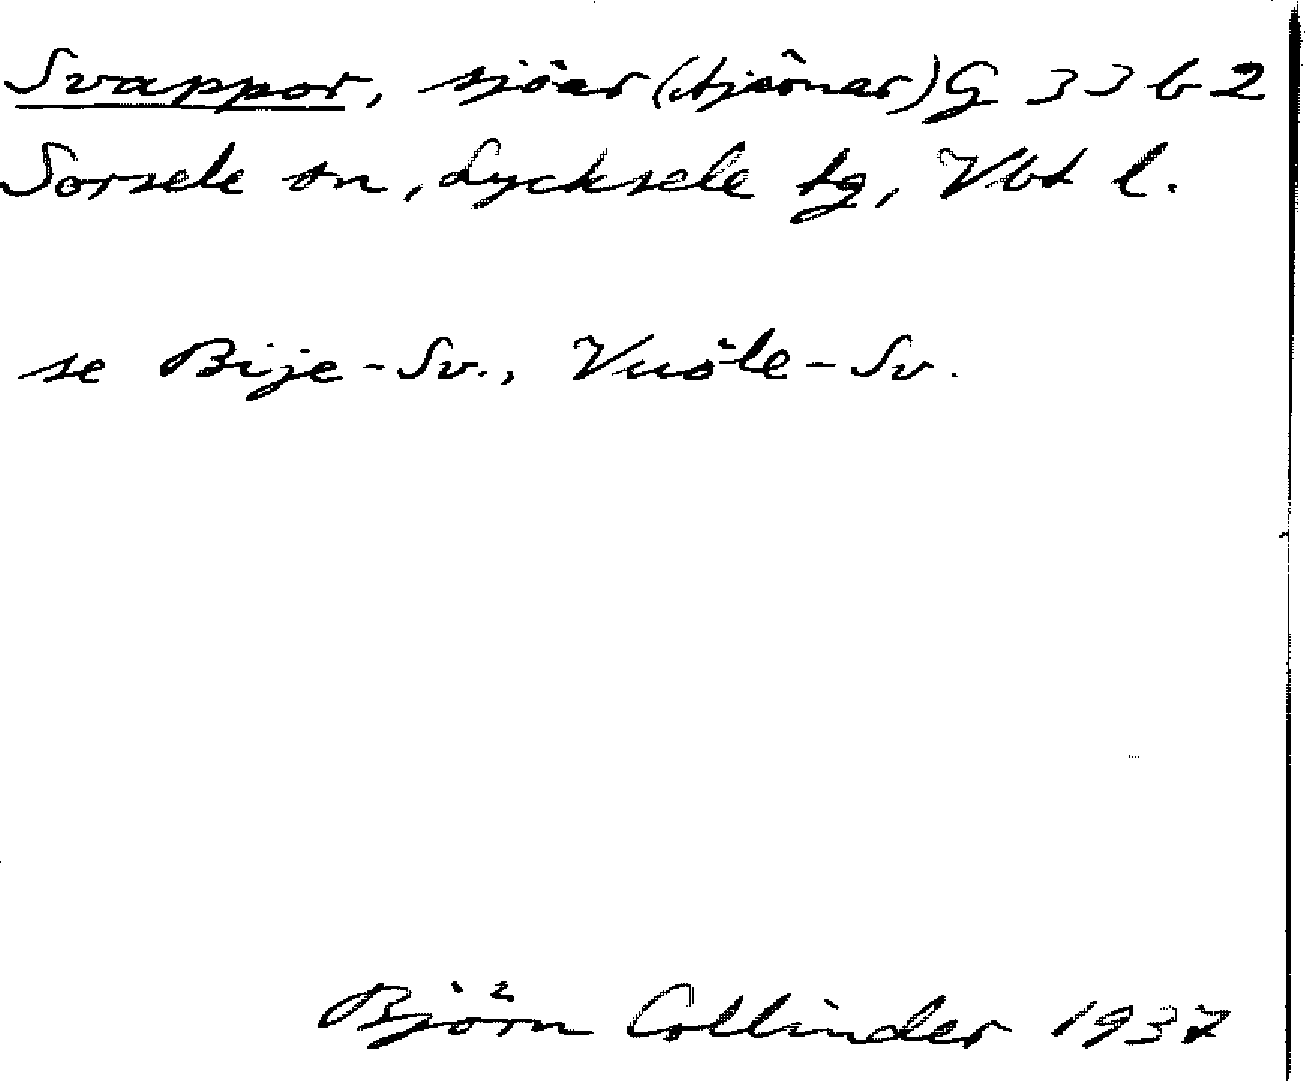 Svappor, sjöar (tjärnar) G 33 b 2
Sorsele sn, Lycksele tg, Vbt l.
se Bije-Sv., Vuöle-Sv.
Björn Collinder 1937